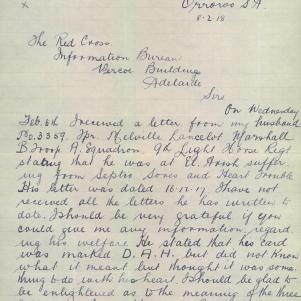 Orroroo S.A.
8-2-18
The Red Cross
Information Bureau
Verco Building
Adelaide
Sirs
On Wednesday
Feb. 6th I received a letter from my husband
No. 3359. Tpr. Melville Lancelot Marshall
B Troop A. Squadron. 9th Light Horse Regt
stating that he was at El. Arish suffer
ing from Septic Sores and Heart Trouble
His letter was dated 16-12-17. I have not
received all the letters he has written to
date. I should be very grateful if you
could give me any information, regard
ing his welfare. He stated that his card
was marked D. A. H. but did not know
what it meant but thought it was some
thing to do with his heart. I should be glad to
be enlightened as to the meaning of the